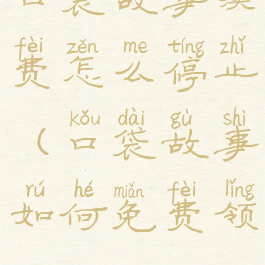 口袋故事续
fèi zěn me tíng zhǐ
费怎么停止
kǒu dài gù shì
（口袋故事
rú hé miǎn fèi lǐng
如何免费领